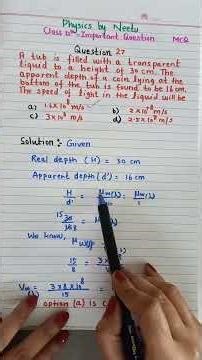 Physics by Neetu
Class 10th-Important Question MCQ
Question 27
A tub is filled with a transparent
liquid to a height of 30 cm. The
apparent depth of a coin lying at the
bottom of the tub is found to be 16 cm.
The speed of light in the liquid will be
a) 1.6×10⁸ m/s b) 2×10⁸ m/s
c) 3×10⁸ m/s d) 2.5×10⁸ m/s
Solution:- Given
Real depth (H) = 30 cm
Apparent depth (d') = 16 cm
H
We know,
15
8
3×8×10⁸
15
option (a) is